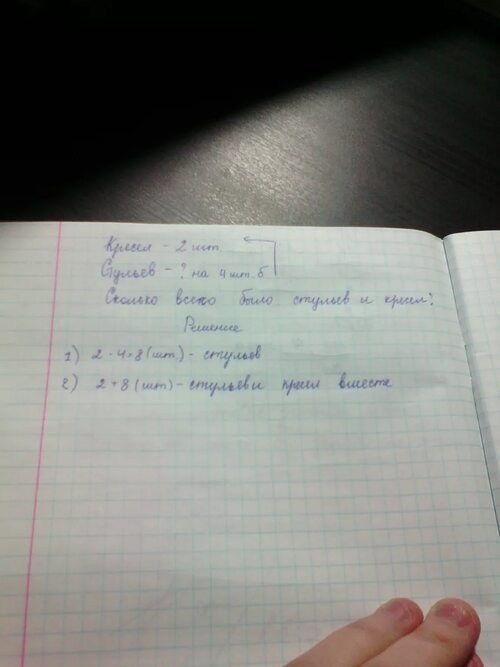 Кресел - 2 шт.
Стульев - ? на 4 шт. б
Сколько всего было стульев и кресел?
Решение
1) 2 · 4 = 8 (шт) - стульев
2) 2 + 8 (шт) - стульев и кресел вместе